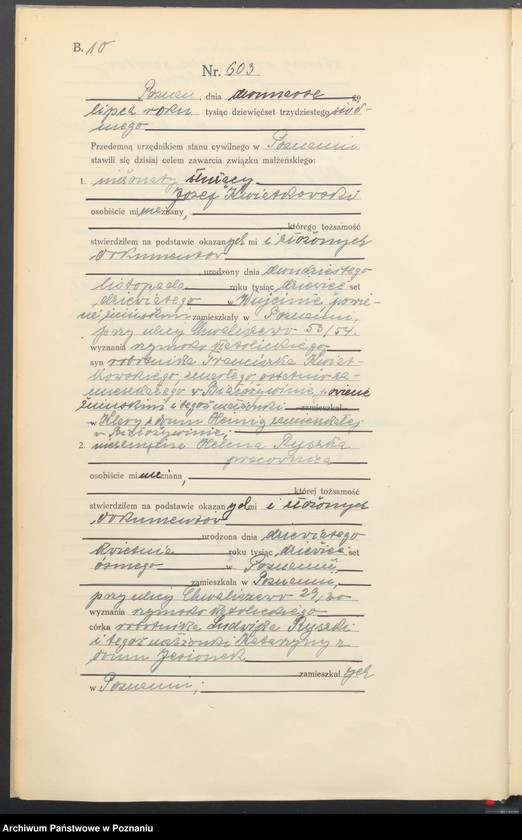 B. 10
Nr. 603
Poznań, dnia dwunastego
lipca roku tysiąc dziewięćset trzydziestego siód-
mego
Przedemną urzędnikiem stanu cywilnego w Poznaniu
stawili się dzisiaj celem zawarcia związku małżeńskiego:
1. nieżonaty służący
Józef Kwiatkowski
osobiście mi nieznany,
którego tożsamość
stwierdziłem na podstawie okazanych mi i złożonych
dokumentów
urodzony dnia dwudziestego
listopada roku tysiąc dziewięćset
dziewiątego w Wójcinie, powie-
cie żnińskim zamieszkały w Poznaniu,
przy ulicy Chwaliszewo 53/54.
wyznania rzymsko katolickiego
syn robotnika Franciszka Kwiat-
kowskiego, zmarłego ostatnio za-
mieszkałego w Białożewinie, powiecie
żnińskim i tegoż małżonki zamieszkał
w Klary z domu Hennig zamieszkałej
w Białożewinie;
2. niezamężna Helena Ryszka
pracownica
osobiście mi nieznana,
której tożsamość
stwierdziłem na podstawie okazanych mi i złożonych
dokumentów
urodzona dnia dziewiątego
kwietnia roku tysiąc dziewięćset
ósmego w Poznaniu,
zamieszkała w Poznaniu,
przy ulicy Chwaliszewo 29/30
wyznania rzymsko katolickiego
córka robotnika Ludwika Ryszki
i tegoż małżonki Katarzyny z
domu Jesionek
zamieszkałych
w Poznaniu;
Archiwum Państwowe w Poznaniu